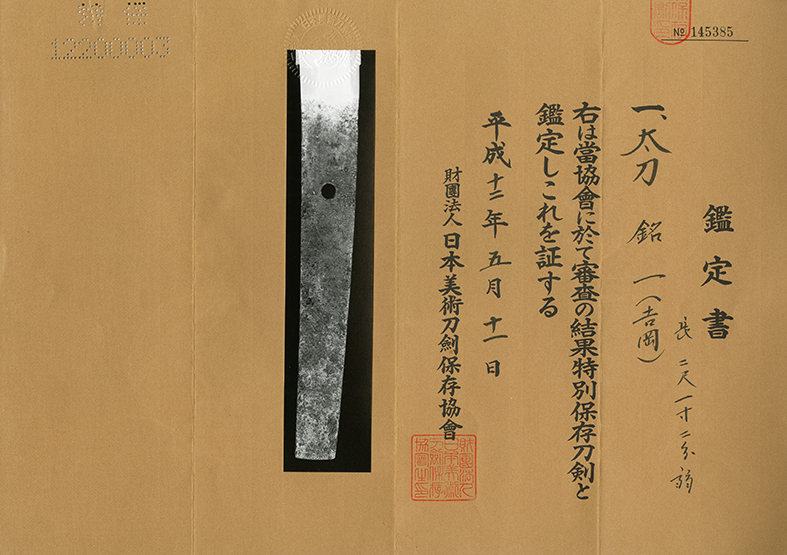 № 145385
鑑定書
一、太刀 銘 一(吉岡)
長 二尺一寸二分弱
右は當協會に於て審査の結果特別保存刀剣と
鑑定しこれを証する
平成十二年五月十一日
財團法人 日本美術刀劍保存協會
12200003